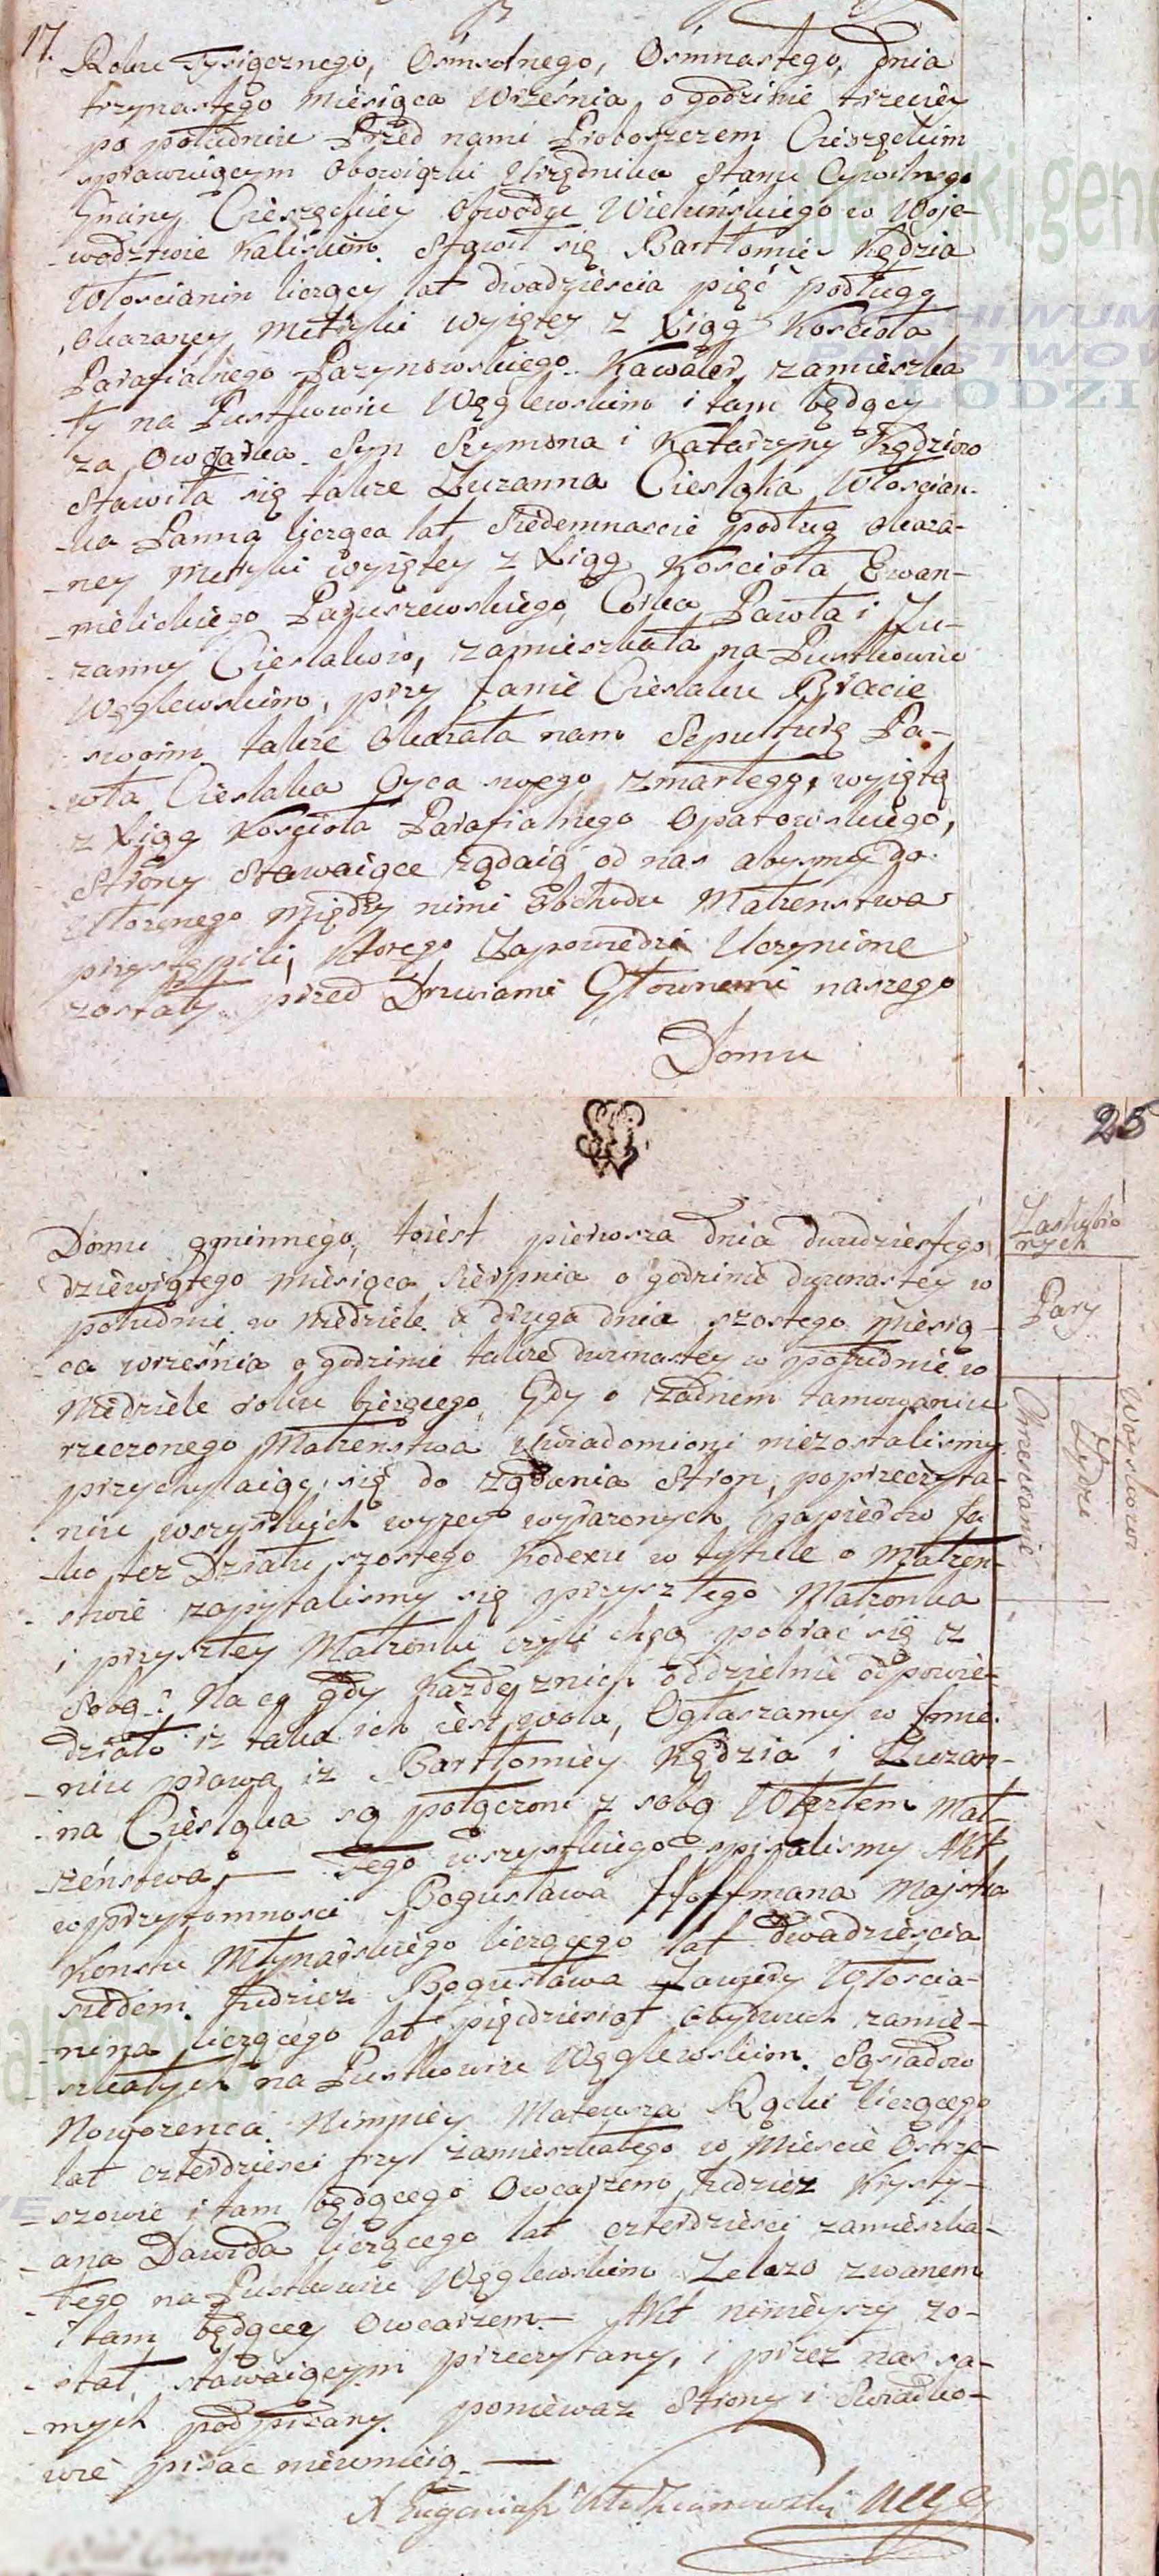 17.
Roku Tysiącznego, Ośmsetnego, Ośmnastego, Dnia
trzynastego Miesiąca Września, o godzinie trzeciey
po południu Przed nami Proboszczem Cieszęckim
sprawuiącym Obowiązki Urzędnika Stanu Cywilnego
Gminy Cieszęckiey Obwodu Wieluńskiego w Woje-
-wodztwie Kaliskim. Stawił się Bartłomiey Kędzia
Włoscianin liczący lat dwadziescia pięć podług
okazaney Metryki wyiętey z Xiąg Kościoła
Parafialnego Parzynowskiego. Kawaler, zamieszka
ły na Pustkowiu Węglewskim i tam będący
za Owczarka. Syn Szymona i Katarzyny Kędziow
Stawiła się także Zuzanna Ciesląka Włoscian-
-ka Panna licząca lat Siedemnascie podług okaza-
-ney Metryki wyiętey z Xiąg Kościoła Ewan-
-nielickiego Corka Pawła i Zu-
zanny Cieslakow, zamieszkała na Pustkowiu
Węglewskim, przy Janie Cieslaku Bracie
swoim także Okazała nam Sepulturę Pa-
-wła Cieslaka Oyca swego zmarłego, wyiętą
z Xiąg Kościoła Parafialnego Opatowskiego,
Strony Stawaiące żądaią od nas abysmy do
Ułożonego między nimi Obchodu Małżenstwa
przystąpili, ktorego Zapowiedzi Uczynione
zostały przed Drzwiami Głownemi naszego
Domu
25
Domu gminnego, toiest pierwsza dnia dwudziestego
dziewiątego miesiąca Sierpnia o godzinie dwunastey w
południe w Niedziele a druga dnia szostego miesią-
-ca września o godzinie także dwunastey w południe w
Niedziele roku bieżącego, Gdy o żadnem tamowaniu
rzeczonego Małżenstwa Uwiadomieni niezostalismy
przychylaiąc się do żądania Stron, poprzeczyta-
niu wszystkich wyzey wyrażonych papierow Ja
-ko też Działu szostego Kodexu w tytule o Małżen-
-stwie zapytalismy się przyszłego Małżonka
i przyszłey Małżonki czyli chcą pobrać się z
Sobą? Na co gdy każde znich oddzielnie odpowie-
działo iż taka ich iest wola, Ogłaszamy w Imie-
-niu prawa iż Bartłomiey Kędzia i Zuzan-
-na Cieslaka są połączeni z sobą Węzłem Mał-
-żeństwa, — Tego wszystkiego spisalismy Akt
w przytomnosci Bogusława Hoffmana Majstra
Konsztu Młynarskiego liczącego lat Dwadziescia
siedem. Tudziez Bogusława Zawady Włoscia-
-nina liczącego lat pięcdziesiąt Obydwuch zamie-
-szkałych na Pustkowiu Węglewskim. Sąsiadow
Nowożenca. Niemniey Mateusza liczącego
lat czterdziesci trzy zamieszkałego w Miescie Ostrze-
-szowie i tam będącego Owcarzem, tudziez Krysty-
-ana Dawida liczącego lat czterdziesci zamieszka-
-łego na Pustkowiu Węglewskim Zelazo zwanem
i tam będący Owcarzem — Akt nimieyszy zo-
-stał stawaiącym przeczytany, i przez nas sa-
-mych podpisany ponieważ Strony i Swiadko-
-wie pisać nieumieią —
Zaslubio
nych
Pary
Chrzescianie
Żydzi